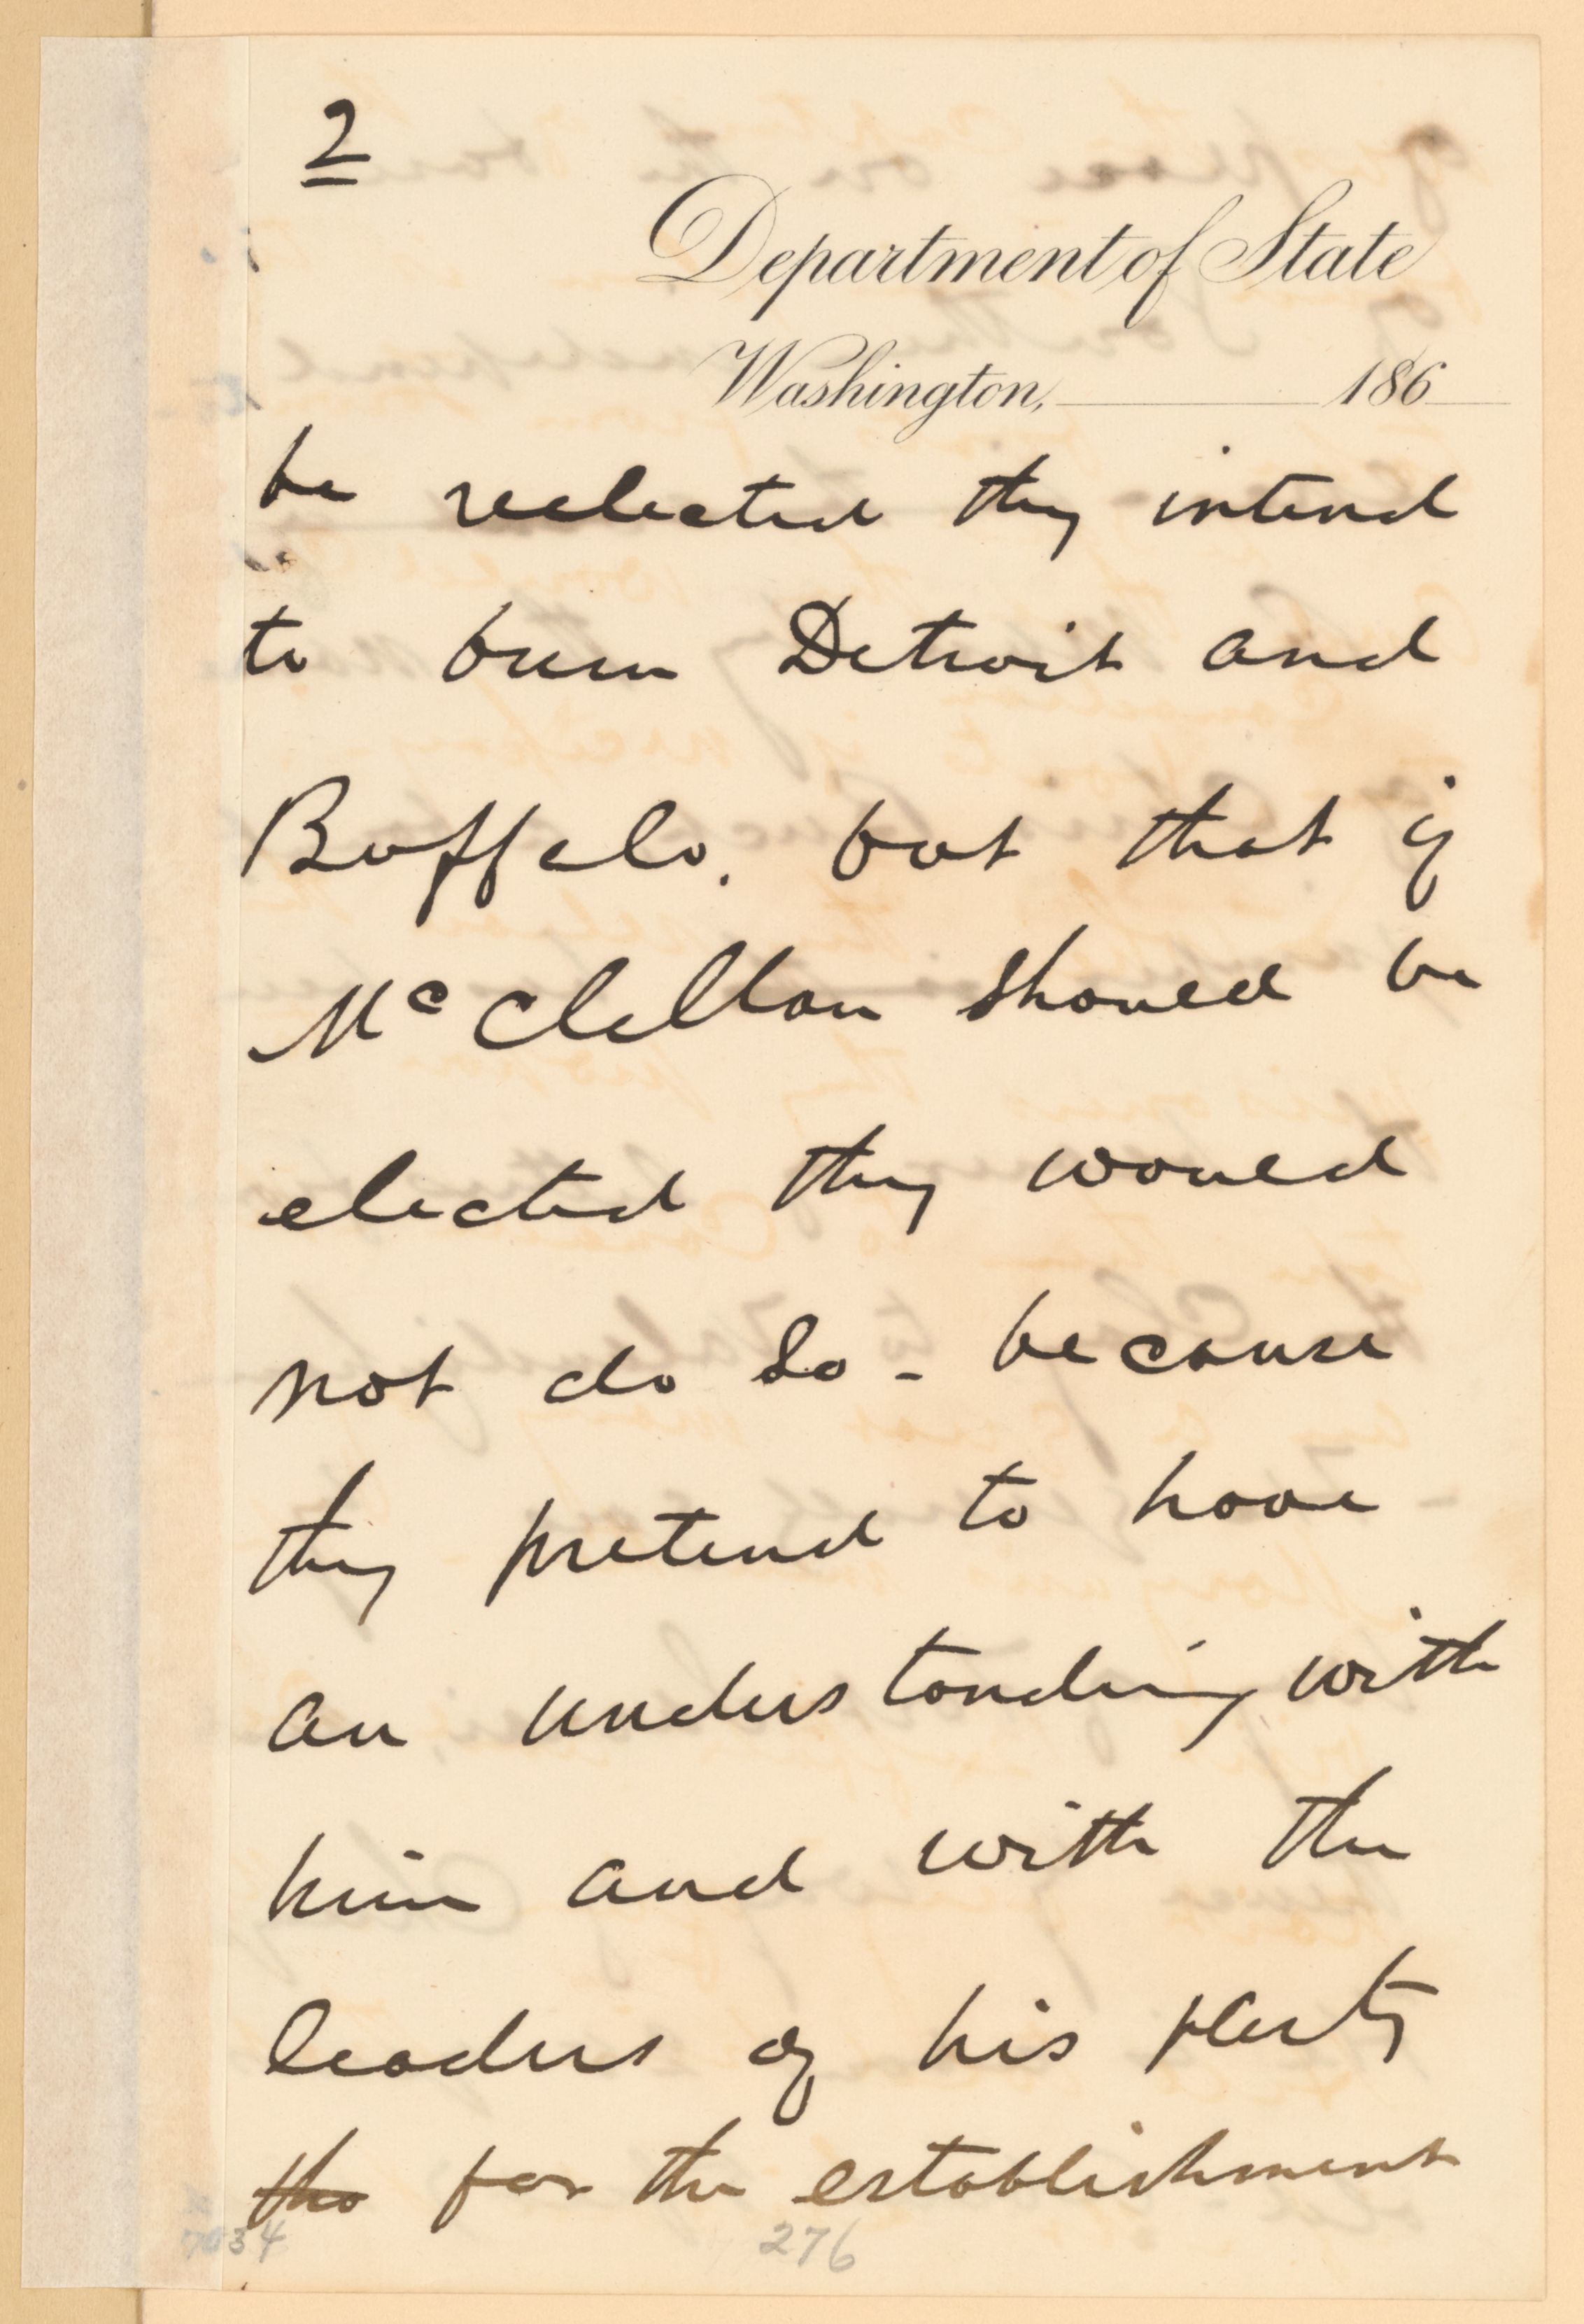 2
Department of State
Washington, 186
be reelected they intend
to burn Detroit and
Buffalo. but that if
McClellan should be
elected they would
not do so - because
they pretend to have
an understanding with
him and with the
leaders of his party
the for the establishment
34 276